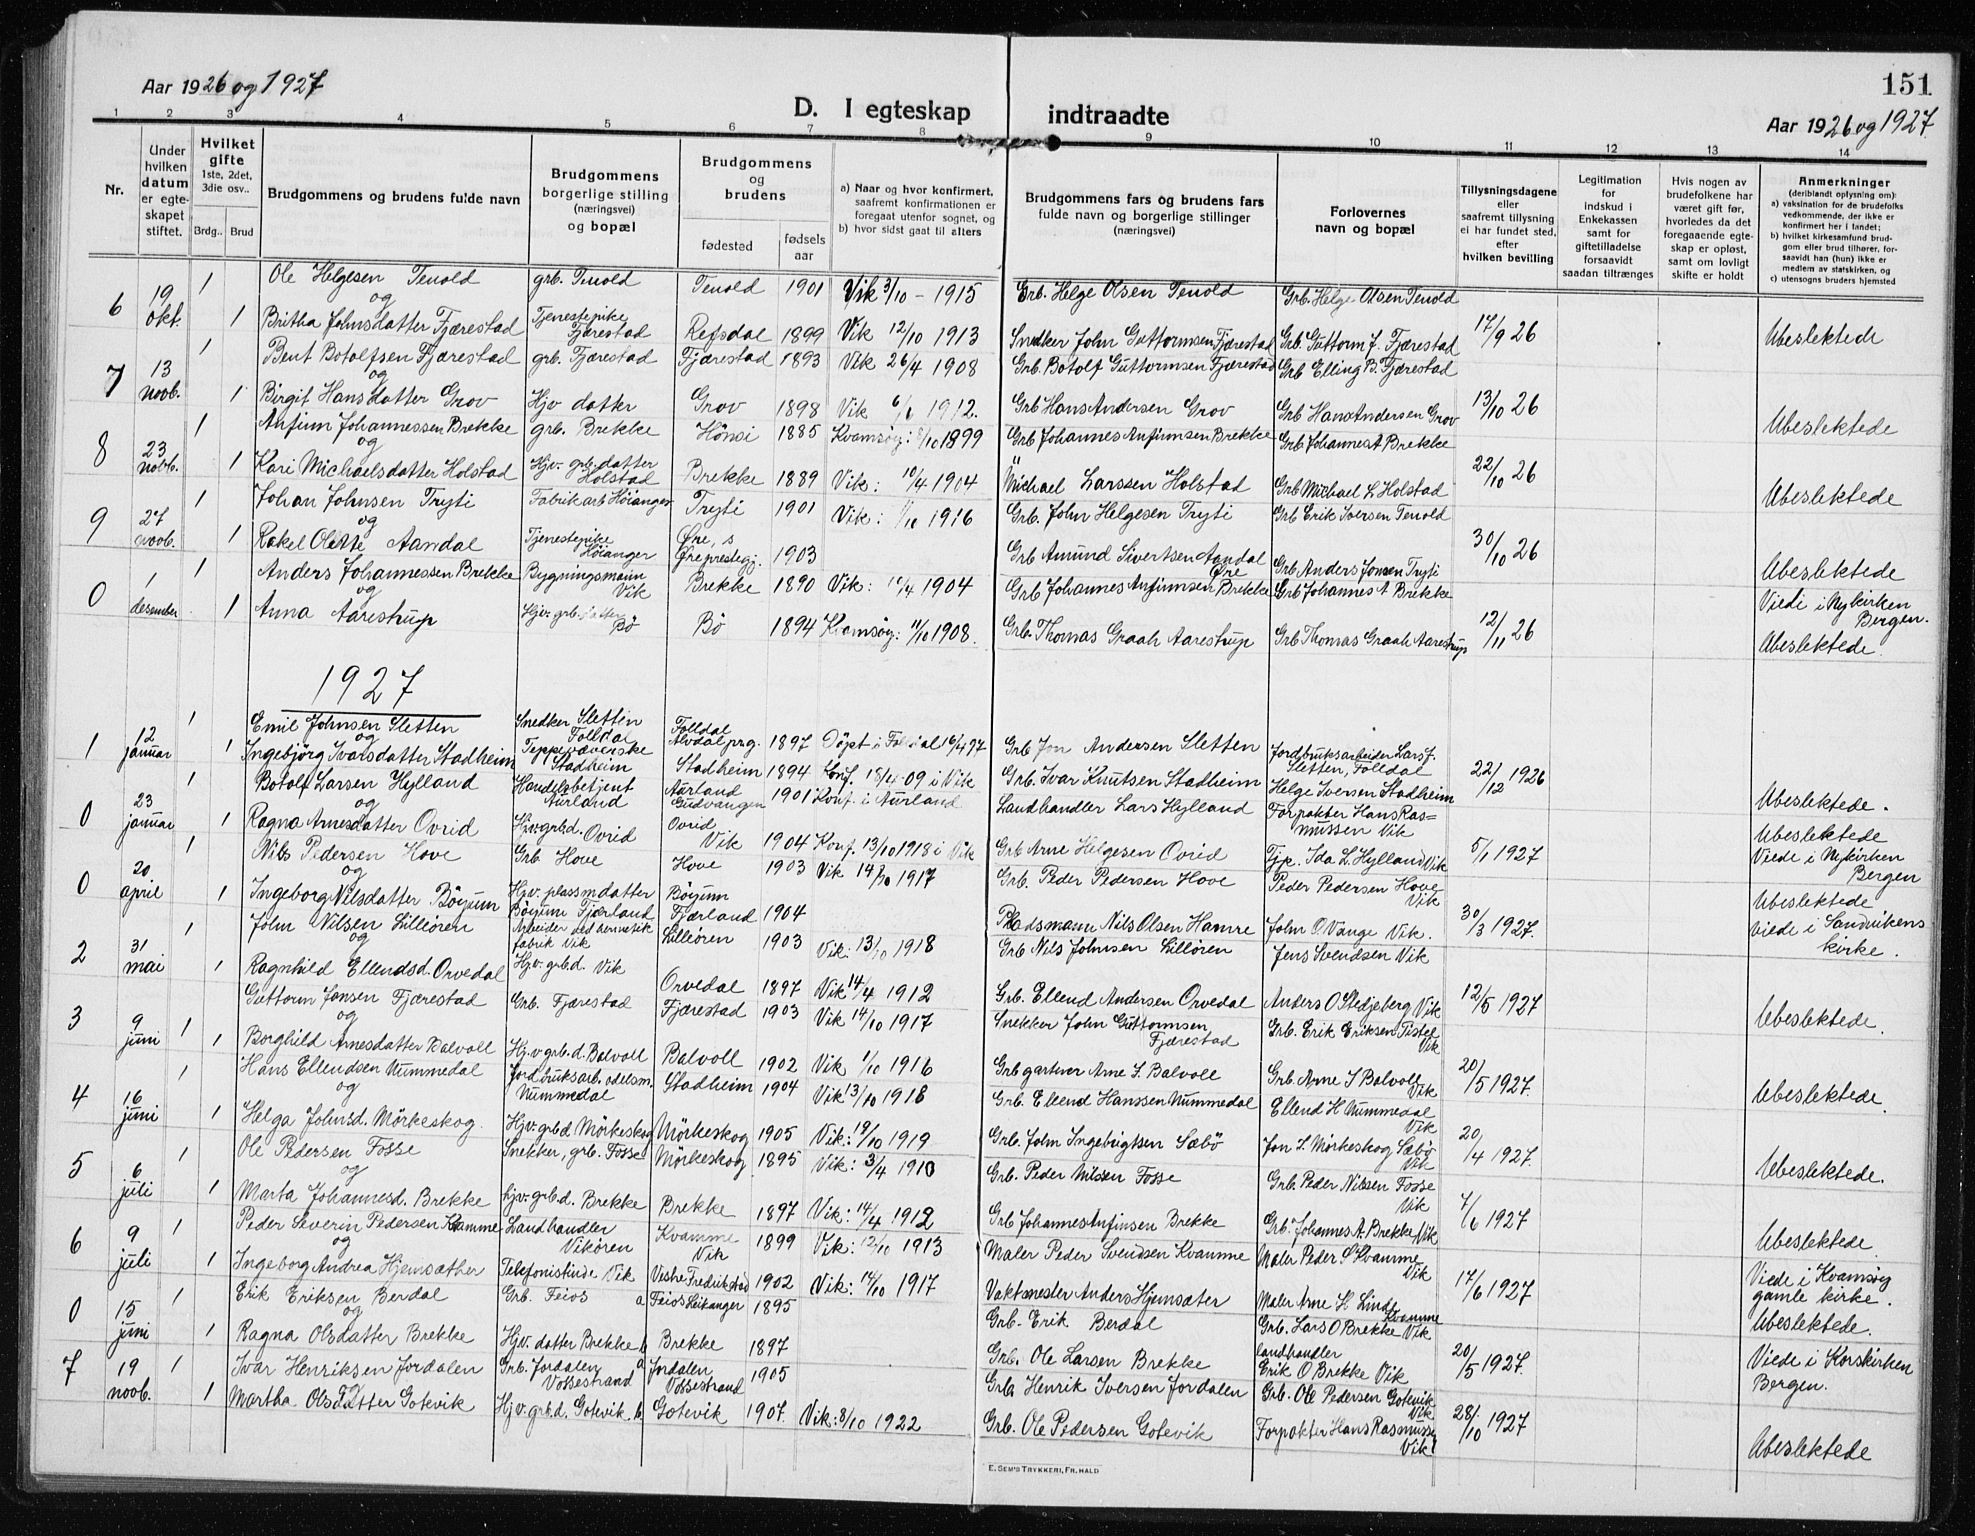 Aar 1926 og 1927
D. I egteskap indtraadte
151
Aar 1926 og 1927
1 2 3 4 5 6 7 8 9 10 11 12 13 14
Nr.
Under hvilken datum er egteskapet stiftet.
Hvilket gifte 1ste, 2det, 3die osv..
Brdg.. Brud
Brudgommens og brudens fulde navn
Brudgommens borgerlige stilling (næringsvei) og bopæl
Brudgommens og brudens
fødested
fødselsaar
a) Naar og hvor konfirmert, saafremt konfirmationen er foregaat utenfor sognet, og
b) hvor sidst gaat til alters
Brudgommens fars og brudens fars fulde navn og borgerlige stillinger (næringsvei)
Forlovernes navn og bopæl
Tillysningsdagene eller saafremt tillysning ei har fundet sted, efter hvilken bevilling
Legitimation for indskud i Enkekassen samt for giftetilladelse forsaavidt saadan tiltrænges
Hvis nogen av brudefolkene har været gift før, hvorledes da det foregaaende egteskap er opløst, samt om lovligt skifte er holdt
Anmerkninger (deriblandt oplysning om):
a) vaksination for de brudefolks vedkommende, der ikke er konfirmert her i landet;
b) hvilket kirkesamfund brudgom eller brud tilhører, forsaavidt han (hun) ikke er medlem av statskirken, og
c) utensogns bruders hjemsted
6 19 okt. 1 Ole Helgesen Tenold grb. Tenold Tenold 1901 Vik 3/10 - 1915 Grb. Helge Olsen Tenold Grb. Helge Olsen Tenold
og
1 Britha Johnsdatter Fjærestad Tjenestepike Fjærestad Refsdal 1899 Vik 12/10 1913 Snedker John Guttormsen Fjærestad Grb. Guttorm J. Fjærestad 17/9 26 Ubeslektede
7 13 novb. 1 Bent Botolfsen Fjærestad grb. Fjærestad Fjærestad 1893 Vik 26/4 1908 Grb. Botolf Guttormsen Fjærestad Grb Elling B. Fjærestad
og
1 Birgit Hansdatter Grov Hjv datter Grov 1898 Vik 6/ 1912. Grb Hans Andersen Grov Grb Hans Andersen Grov 13/10 26 Ubeslektede
8 23 novb. 1 Anfinn Johannessen Brekke grb. Brekke Hönsi 1885 Kvamsøy: 8/10 1899 Grb Johannes Anfinnsen Brekke Grb Johannes A Brekke
og
1 Kari Michaelsdatter Holstad Hjv. grb. datter Holstad Brekke 1889 Vik: 10/4 1904 " Michael Larssen Holstad Grb Michael L. Holstad 22/10 26 Ubeslektede
9 27 novb. 1 Johan Johnsen Tryti Fabrikarb Höianger Tryti 1901 Vik: 1/10 1916 Grb. John Helgesen Tryti Grb Erik Iversen Tenold
og
1 Rakel Olette Aandal Tjenestepike Höianger Øre, s Øre prestegj. 1903 Grb Amund Sivertsen Aandal Øre Grb Anders Jonsen Tryti 30/10 26 Ubeslektede
0 1 desember 1 Anders Johannessen Brekke Bygningsmann Vik Brekke 1890 Vik: 10/4 1904 Grb Johannes Anfinnsen Brekke Grb Johannes A Brekke Viede i Nykirken Bergen.
og
1 Anna Aarestrup Hjv. grb. datter Bö Bö 1894 Kvamsøy: 11/10 1908. Grb. Thomas Graah Aarestrup Grb Thomas Graah Aarestrup 12/11 26 Ubeslektede.
1927
1 12 januar 1 Emil Johnsen Sletten Snedker Sletten Folldal Folldal Alvdal prg. 1897 Döpt i Folldal 16/4 97 Grb Jon Andersen Sletten Jordbruksarbeider Lars J. Sletten, Folldal
og
1 Ingebjörg Ivarsdatter Stadheim Teppeveverske Stadheim Stadheim 1894 Konf. 18/4-09 i Vik Grb. Ivar Knutsen Stadheim Helge Iversen Stadheim 22/12 1926 Ubeslektede.
0 23 januar 1 Botolf Larsen Hylland Handelsbetjent Aurland Aurland Gudvangen 1901 Konf. i Aurland Landhandler Lars Hylland Forpakter Hans Rasmussen Vik
og
1 Ragna Arnesdatter Ovrid Hjv grb d. Ovrid Ovrid Vik 1904 Konf. 13/10 1918 i Vik Grb Arne Helgesen Ovrid Tjp. Ida L. Hylland Vik 5/1 1927 Ubeslektede Viede i Nykirken Bergen
0 20 april 1 Nils Pedersen Hove Grb Hove Hove 1903 Vik 14/10 1917 Grb. Peder Pedersen Hove Peder Pedersen Hove Vik
1 Ingeborg Nilsdatter Böyum Hjv. plassmdatter Böyum Fjærland Böyum Fjærland 1904 Pladsmann Nils Olsen Hamre John O. Vange Vik. 30/3 1927. Ubeslektede viede i Sandvikens kirke.
2 31 mai 1 John Nilsen Lilleören Arbeider ved hermetikfabrik Vik Lilleören 1903 Vik: 13/10 1918 Grb Nils Johnsen Lilleören Jens Svendsen Vik
og
1 Ragnhild Ellendsd. Orvedal Hjv. grb.d. Vik Orvedal 1897 Vik 14/4 1912 Grb. Ellend Andersen Orvedal Anders O Stedjeberg Vik 12/5 1927 Ubeslektede.
3 9 juni 1 Guttorm Jonsen Fjærestad Grb. Fjærestad Fjærestad 1903 Vik 14/10 1917 Snekker John Guttormsen Fjærestad Grb. Erik Eriksen Tistel Vik
og
1 Borghild Arnesdatter Balvoll Hjv grb d. Balvoll Balvoll 1902 Vik 1/10 1916 Grb gartner Arne S. Balvoll Grb. Arne S Balvoll Vik 20/5 1927. Ubeslektede.
4 16 juni 1 Hans Ellendsen Nummedal Jordbruksarb. odelsm. Nummedal Stadheim 1904 Vik 13/10 1918 Grb. Ellend Hanssen Nummedal Ellend H Nummedal Vik
og
1 Helga Johnsd. Mörkeskog. Hjv. grb d Mörkeskog Mörkeskog 1905 Vik: 19/10 1919 Grb. John Ingebrigtsen Sæbö Jon L. Mörkeskog Sæbö Vik 20/4 1927. Ubeslektede.
5 6 juli Ole Pedersen Fosse Snekker, grb. Fosse Mörkeskog 1895 Vik: 3/4 1910 Grb. Peder Nilssen Fosse Grb. Peder Nilssen Fosse Vik
og
1 Marta Johannesd. Brekke hjv. grb d. Brekke Brekke 1897 Vik: 14/4 1912 Grb Johannes Anfinsen Brekke Grb. Johannes A. Brekke Vik 7/6 1927 Ubeslektede.
6 9 juli 1 Peder Severin Pedersen Kvamme Landhandler Vikören Kvamme Vik 1899 Vik: 12/10 1913 Maler Peder Svendsen Kvamme Maler Peder S. Kvamme Vik
og
1 Ingeborg Andrea Hjemsæther Telefonistinde Vik Vestre Fredrikstad 1902 Vik: 14/10 1917 Vaktmester Anders Hjemsæter Maler Arne H. Linde Kvamme 17/6 1927 Viede i Kvamsöy gamle kirke. Ubeslektede.
0 15 juni 1 Erik Eriksen Berdal Grb. Feios a Feios Leikanger 1895 Grb. Erik Berdal Grb. Lars O Brekke Vik
og
1 Ragna Olsdatter Brekke Hjv. datter Brekke b Brekke 1897 Grb. Ole Larsen Brekke landhandler Erik O Brekke Vik 20/5 1927. Viede i Korskirken Bergen.
7 19 novb. 1 Ivar Henriksen Jordalen Grb. Jordalen Vossestrand a Jordalen Vossestrand 1905 Grb Henrik Iversen Jordalen Grb. Ole Pedersen Gotevik Vik
og
1 Martha Olsdatter Gotevik Hjv. grb d. Gotevik b Gotevik 1907. Vik: 8/10 1922 Grb. Ole Pedersen Gotevik Forpakter Hans Rasmussen Vik 28/10 1927 Ubeslektede
E. SEM'S TRYKKERI, FR.HALD